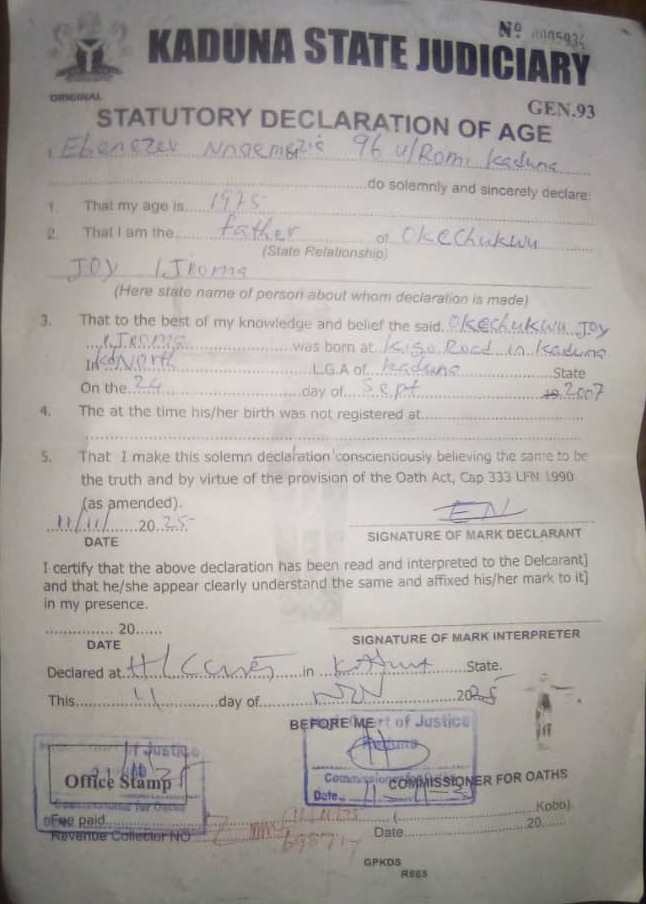 Nº
KADUNA STATE JUDICIARY
ORIGINAL
GEN.93
STATUTORY DECLARATION OF AGE
I Ebenezer 96 u/Romi Kaduna
do solemnly and sincerely declare:
1. That my age is 1975
2. That I am the father of Okechukwu
(State Relationship)
Joy Ijeoma
(Here state name of person about whom declaration is made)
3. That to the best of my knowledge and belief the said Okechukwu Joy
Ijeoma was born at Kigo Road in Kaduna
In Kd North L.G.A of Kaduna State
On the 24 day of Sept 19 2007
4. The at the time his/her birth was not registered at
5. That I make this solemn declaration conscientiously believing the same to be
the truth and by virtue of the provision of the Oath Act, Cap 333 LFN 1990
(as amended).
11/11/ 20 25 EN
DATE SIGNATURE OF MARK DECLARANT
I certify that the above declaration has been read and interpreted to the Delcarant]
and that he/she appear clearly understand the same and affixed his/her mark to it]
in my presence.
20
DATE SIGNATURE OF MARK INTERPRETER
Declared at in Kaduna State.
This 11 day of Nov 2025
BEFORE ME of Justice
Justice
Kaduna
Office Stamp
COMMISSIONER FOR OATHS
Commissioner for Oaths
Date
Fee paid ( Kobo)
Revenue Collector NO Date 20
GPKDS
R665